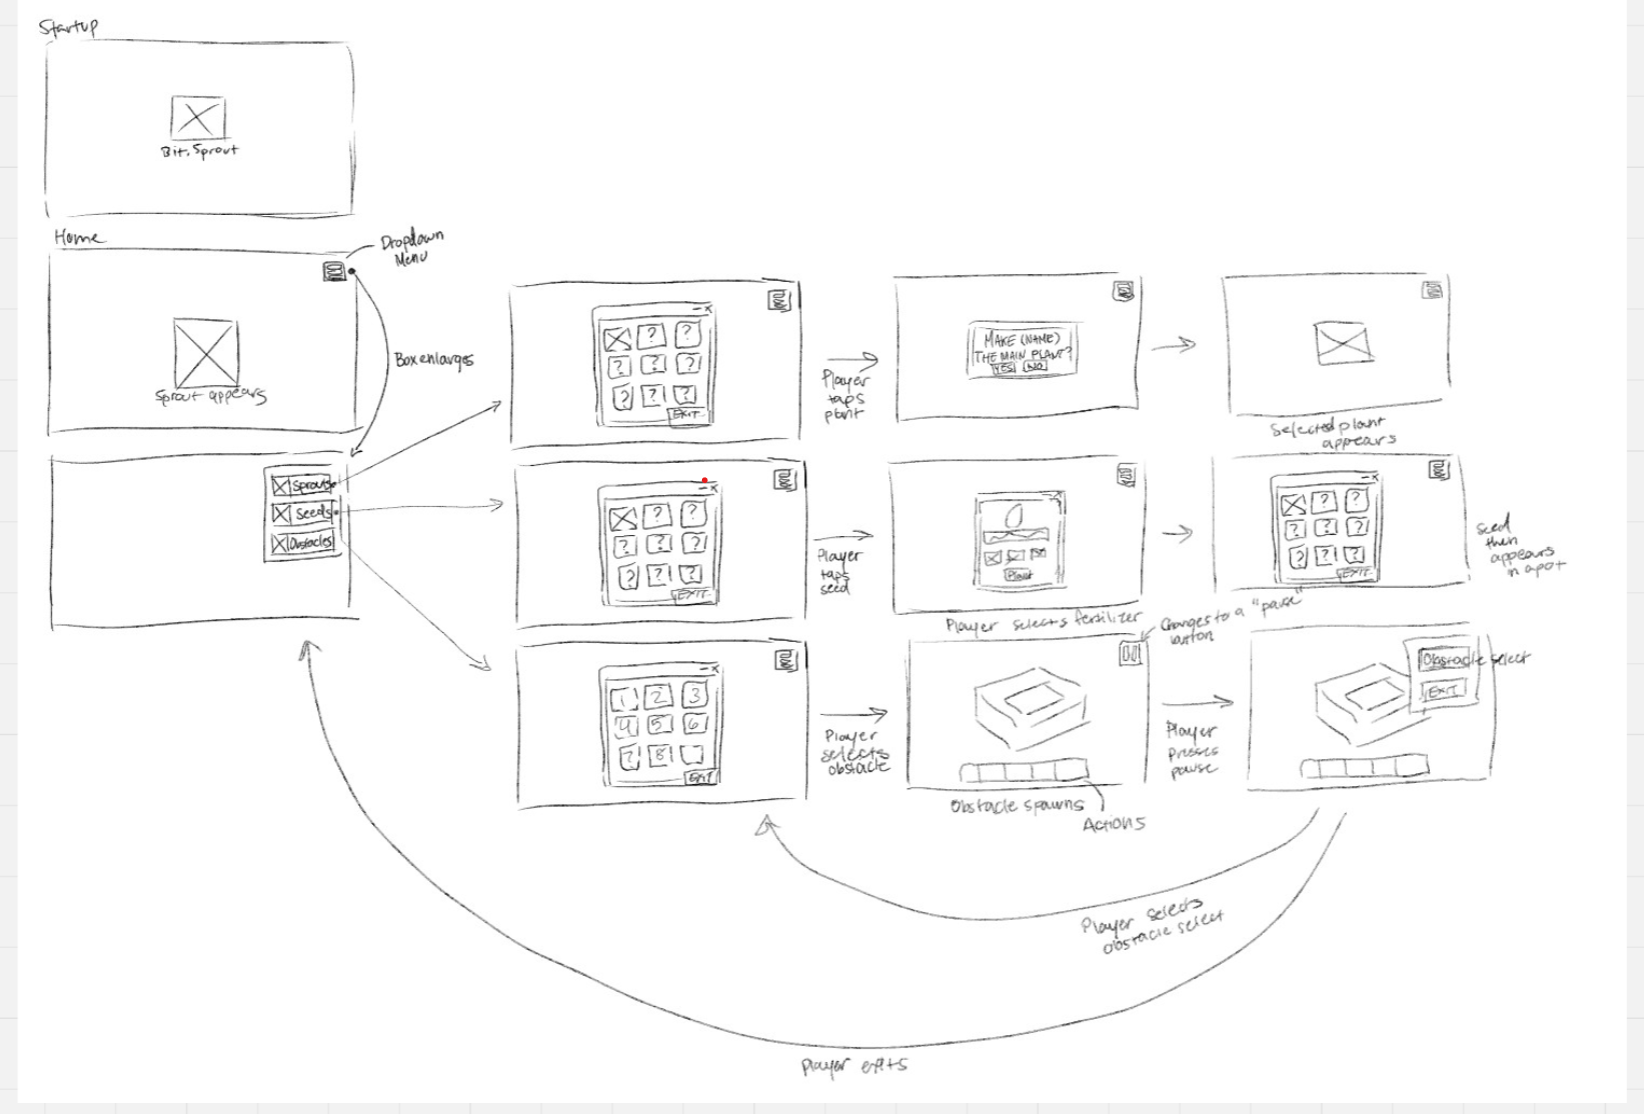 Startup
Bit.Sprout
Home
Dropdown
Menu
Sprout appears
Box enlarges
Sprouts
Seeds
Obstacles
? ?
? ? ?
? ? ?
EXIT
Player
taps
plant
MAKE (NAME)
THE MAIN PLANT?
YES NO
Selected plant
appears
? ?
? ? ?
? ? ?
EXIT
Player
taps
seed
Plant
Player selects fertilizer
? ?
? ? ?
? ? ?
EXIT
Seed
then
appears
in a pot
Changes to a "pause"
button
1 2 3
4 5 6
7 8
EXIT
Player
selects
obstacle
Obstacle spawns
Actions
Player
presses
pause
Obstacle select
EXIT
Player selects
obstacle select
Player exits